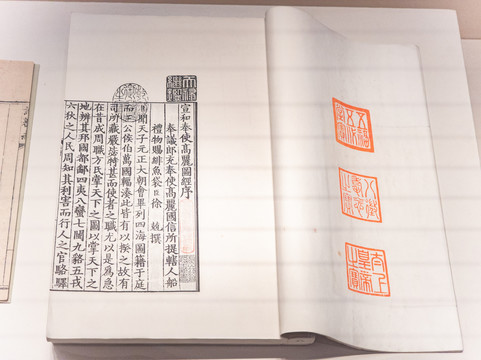 宣和奉使高麗圖經序
奉議郎充奉使高麗國信所提轄人船
禮物賜緋魚袋臣徐兢撰
臣聞天子元正大朝會畢列四海圖籍于庭
而王公侯伯萬國輻湊此皆有以揆之故有
司所藏嚴毖特甚而使者之職尤以是為急
在昔成周職方氏掌天下之圖以掌天下之
地辨其邦國都鄙四夷八蠻七閩九貉五戎
六狄之人民周知其利害而行人之官駱驛
天祿
繼鑑
八徵
耄念
之寶
太上
皇帝
之寶